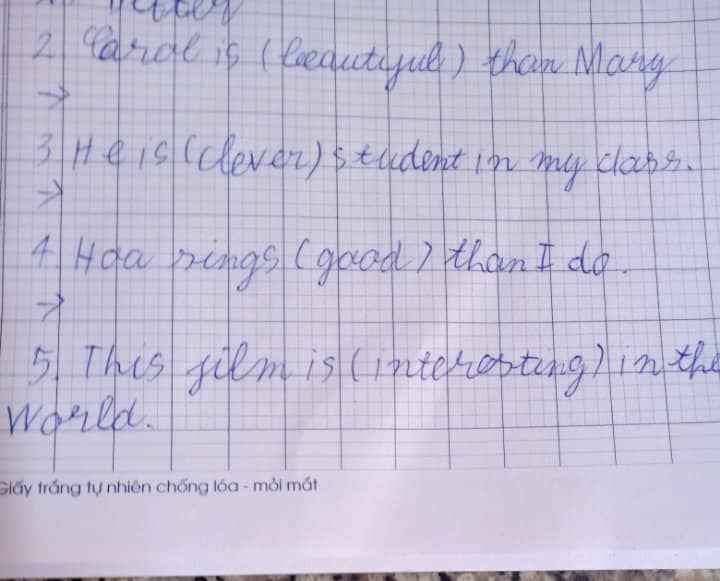 2. Carol is (beautyful) than Mary
→
3. He is (clever) student in my class.
→
4. Hoa sings (good) than I do.
→
5. This film is (interesting) in the
World.
Giấy trắng tự nhiên chống lóa - mỏi mắt